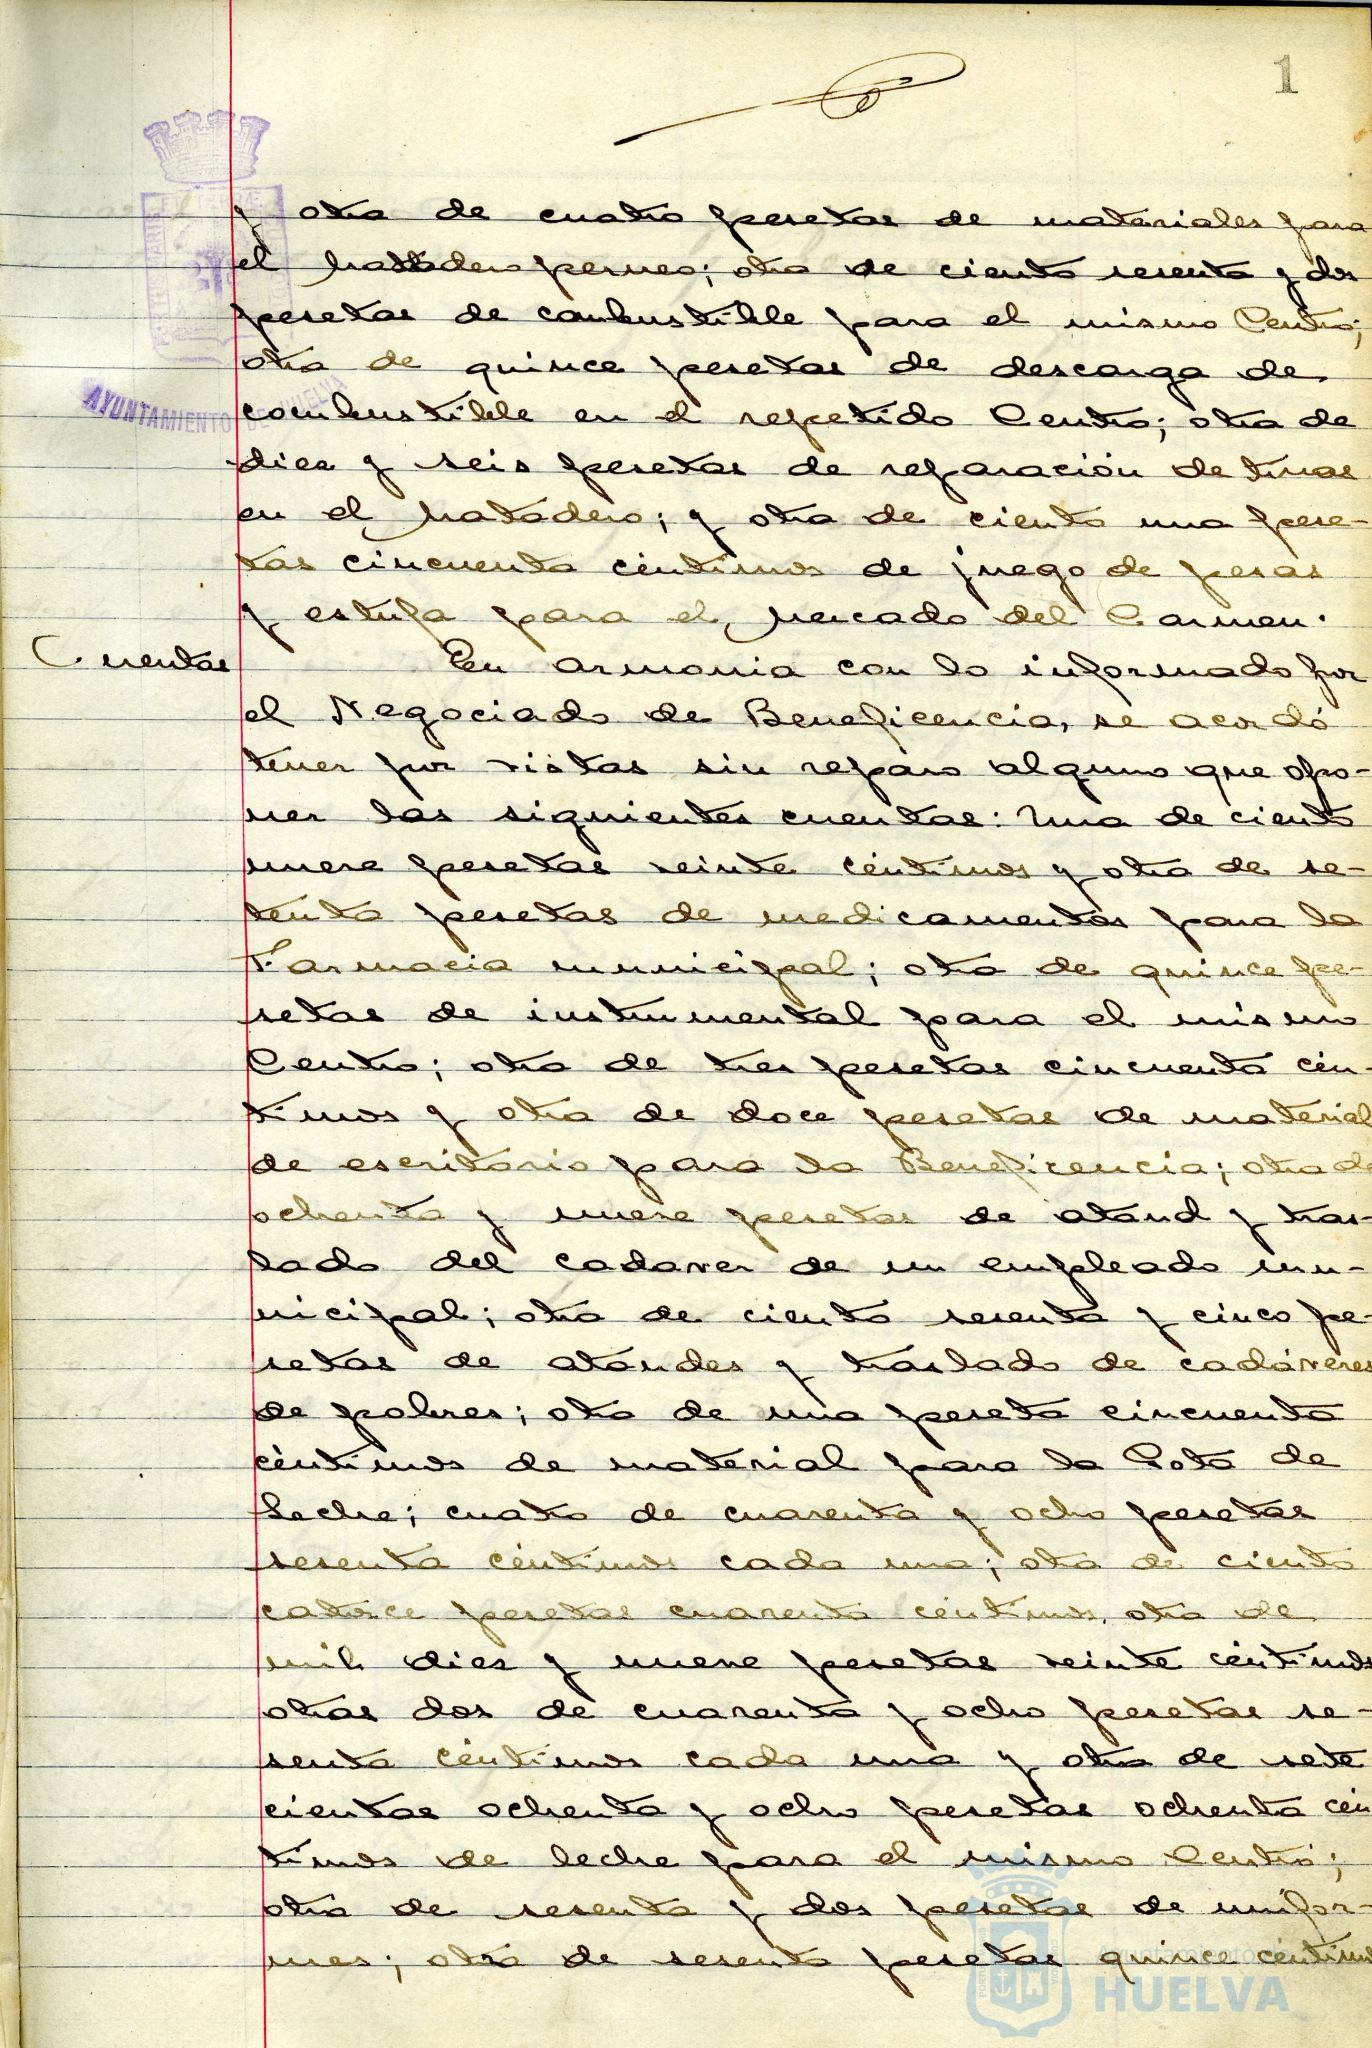 1
y otra de cuatro pesetas de materiales para
el Matadero perneo; otra de ciento sesenta y dos
pesetas de combustible para el mismo Centro;
otra de quince pesetas de descarga de
combustible en el repetido Centro; otra de
diez y seis pesetas de reparación de tinas
en el Matadero; y otra de ciento una pese-
tas cincuenta céntimos de juego de pesas
y estufa para el Mercado del Carmen.
Cuentas
En armonia con lo informado por
el Negociado de Beneficencia, se acordó
tener por vistas sin reparo alguno que opo-
ner las siguientes cuentas: Una de ciento
nueve pesetas veinte céntimos y otra de se-
tenta pesetas de medicamentos para la
Farmacia municipal; otra de quince pe-
setas de instrumental para el mismo
Centro; otra de tres pesetas cincuenta cén-
timos y otra de doce pesetas de material
de escritorio para la Beneficencia; otra de
ochenta y nueve pesetas de ataud y tras-
lado del cadaver de un empleado mu-
nicipal; otra de ciento sesenta y cinco pe-
setas de ataudes y traslado de cadáveres
de pobres; otra de una peseta cincuenta
céntimos de material para la Gota de
Leche; cuatro de cuarenta y ocho pesetas
sesenta céntimos cada una; otra de ciento
catorce pesetas cuarenta céntimos, otra de
mil diez y nueve pesetas veinte céntimos
otras dos de cuarenta y ocho pesetas se-
senta céntimos cada una y otra de sete
cientas ochenta y ocho pesetas ochenta cén
timos de leche para el mismo Centro;
otra de sesenta y dos pesetas de unifor-
mes; otra de sesenta pesetas quince céntimos
AYUNTAMIENTO DE HUELVA
Ayuntamiento
HUELVA